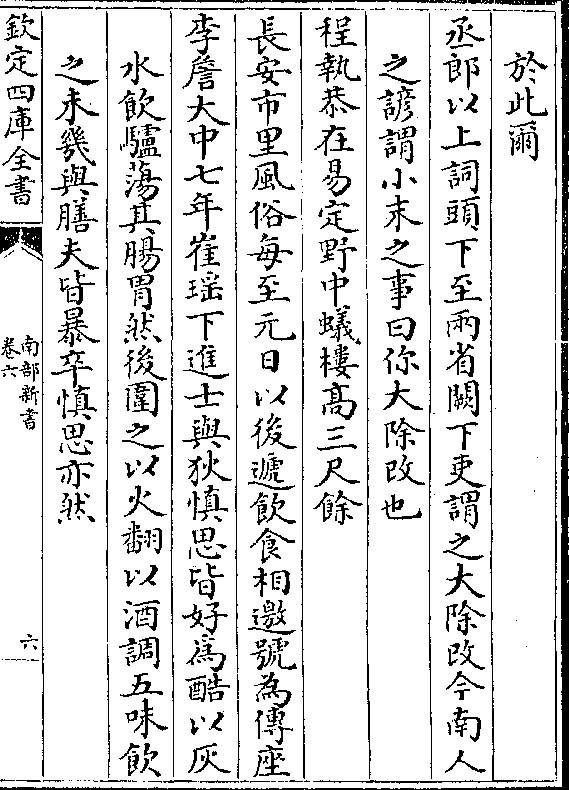 於此爾
丞郎以上詞頭下至兩省闕下吏謂之大除改今南人
之諺謂小末之事曰你大除改也
程執恭在易定野中蟻樓高三尺餘
長安市里風俗每至元日以後遞飲食相邀號為傳座
李詹大中七年崔瑶下進士與狄慎思皆好為酷以灰
水飲驢蕩其腸胃然後圍之以火翻以酒調五味飲
之未幾與膳夫皆暴卒慎思亦然
欽定四庫全書
南部新書
卷六
六